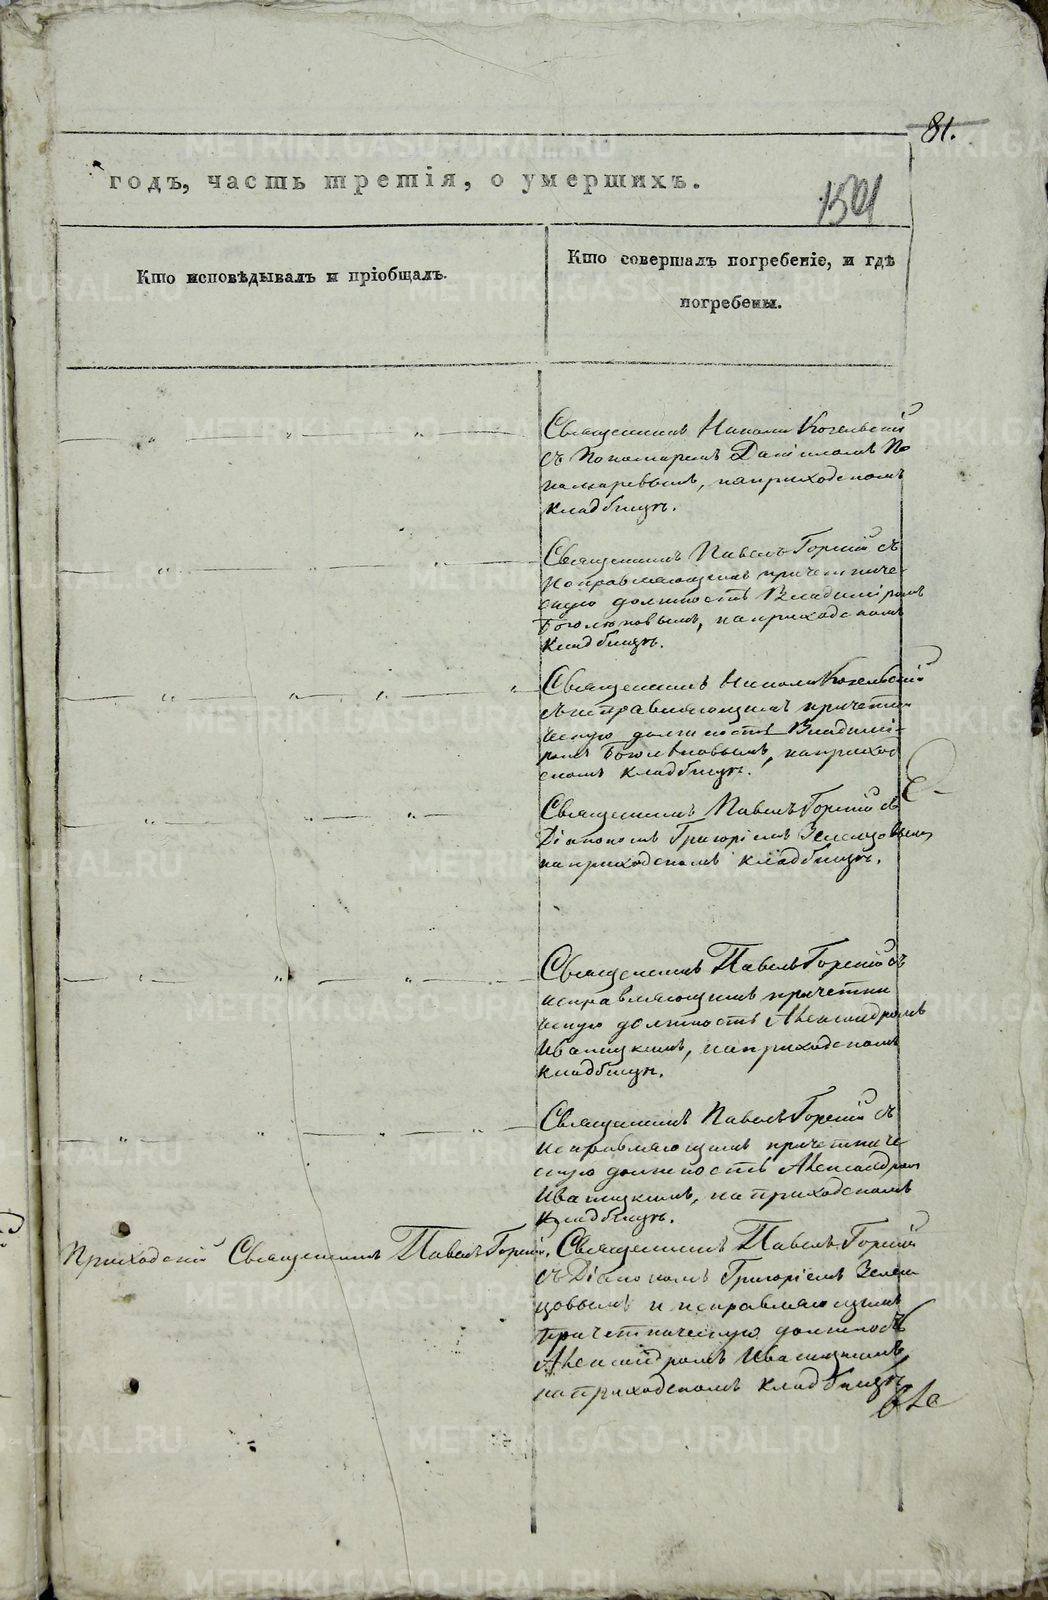 81.
годъ, часть третія, о умершихъ.
Кто исповѣдывалъ и пріобщалъ.
Кто совершалъ погребеніе, и гдѣ
погребены.
Священникъ Николай
съ Пономаремъ Даніиломъ По
намаревымъ, на приходскомъ
кладбищѣ.
Священникъ Павелъ Горныій съ
исправляющимъ причетниче-
скую должность Владиміромъ
Боголюповымъ, на приходскомъ
кладбищѣ.
Священникъ Николай
съ исправляющимъ причетни
ческую должность Владимі-
ромъ Боголюповымъ, на приход
скомъ кладбищѣ.
Священникъ Павелъ съ
Діакономъ Григоріемъ Зеленцовымъ
на приходскомъ кладбищѣ.
Священникъ Павелъ съ
исправляющимъ причетни
ческую должность Александромъ
Иваницкимъ, на приходскомъ
кладбищѣ.
Священникъ Павелъ съ
исправляющимъ причетниче
скую должность Александром
Иваницкимъ, на приходскомъ
кладбищѣ.
Приходскій Священникъ Павелъ
Священникъ Павелъ
съ Діакономъ Григоріемъ Зелен
цовымъ и исправляющимъ
причетническую должность
Александромъ Иваницкимъ
на приходскомъ кладбищѣ
METRIKI.GASO-URAL.RU